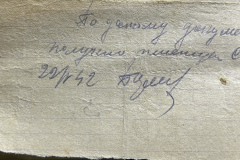 По данному докуме
получено пшеницы
20/IV 42